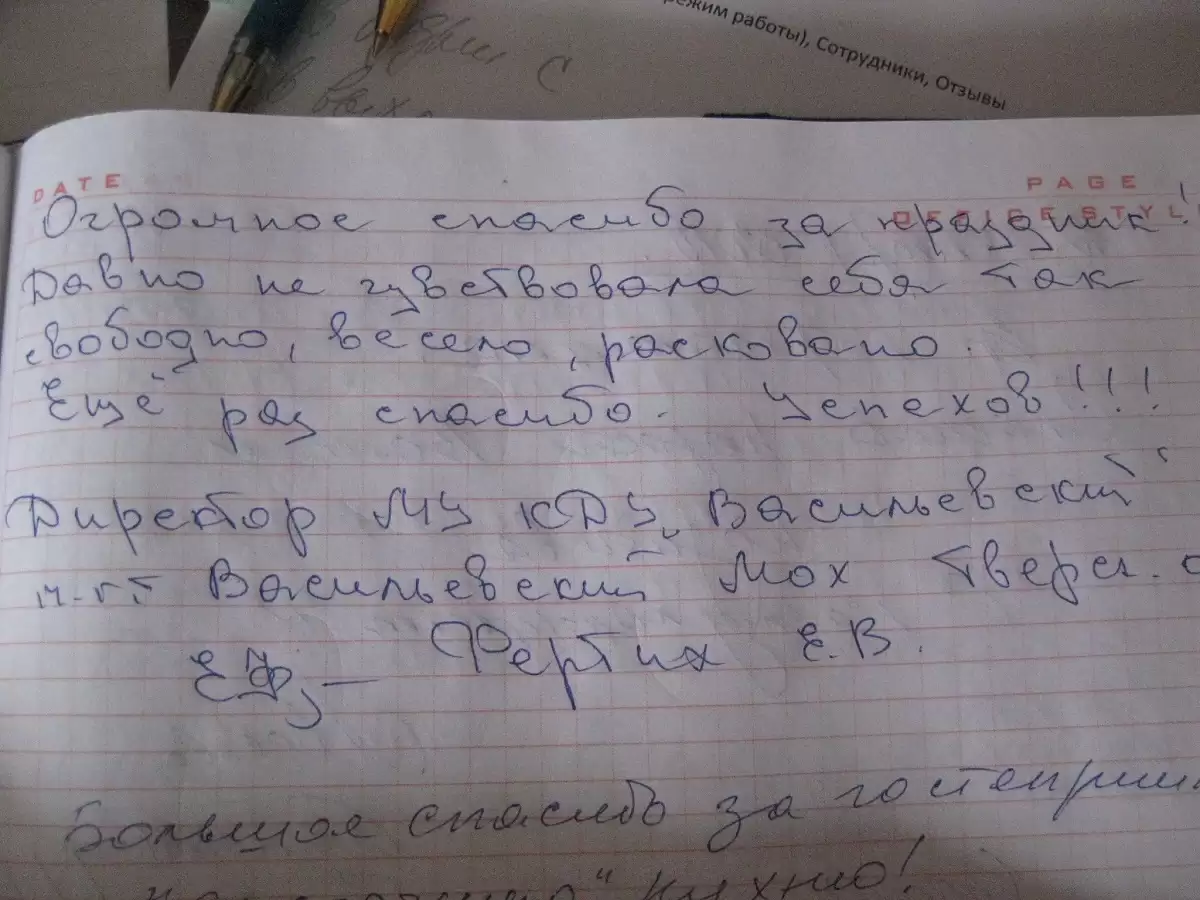 режим работы), Сотрудники, Отзывы
DATE
PAGE
Огромное спасибо за праздник!
Давно не чувствовала себя так
свободно, весело, расковано.
Ещё раз спасибо. Успехов!!!
Директор МУ КДУ „Васильевский“
п-гт Васильевский Мох Тверск. о
Фертих Е.В.
Большое спасибо за гостепри
кухню!